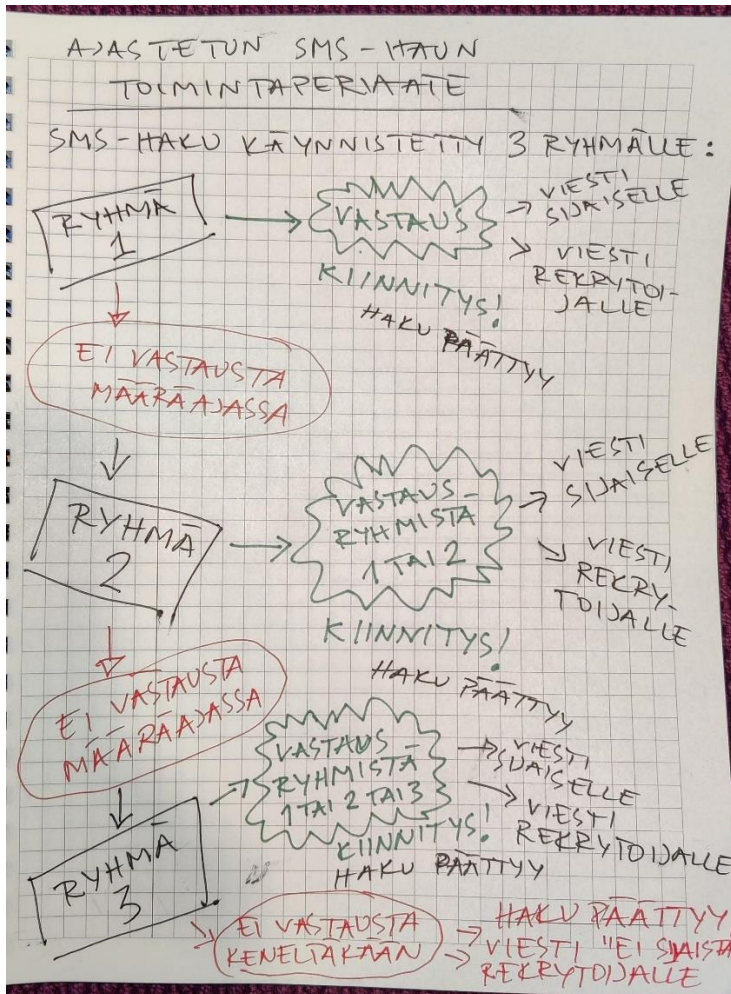 AJASTETUN SMS-HAUN
TOIMINTAPERIAATE
SMS-HAKU KÄYNNISTETTY 3 RYHMÄLLE:
RYHMÄ
1
VASTAUS
VIESTI
SIJAISELLE
VIESTI
REKRYTOI-
JALLE
KIINNITYS!
HAKU PÄÄTTYY
EI VASTAUSTA
MÄÄRÄAJASSA
RYHMÄ
2
VASTAUS-
RYHMISTÄ
1 TAI 2
VIESTI
SIJAISELLE
VIESTI
REKRY-
TOIJALLE
KIINNITYS!
HAKU PÄÄTTYY
EI VASTAUSTA
MÄÄRÄAJASSA
RYHMÄ
3
VASTAUS
RYHMISTÄ
1 TAI 2 TAI 3
VIESTI
SIJAISELLE
VIESTI
REKRYTOIJALLE
KIINNITYS!
HAKU PÄÄTTYY
EI VASTAUSTA
KENELTÄKÄÄN
HAKU PÄÄTTYY
VIESTI "EI SIJAISTA
REKRYTOIJALLE